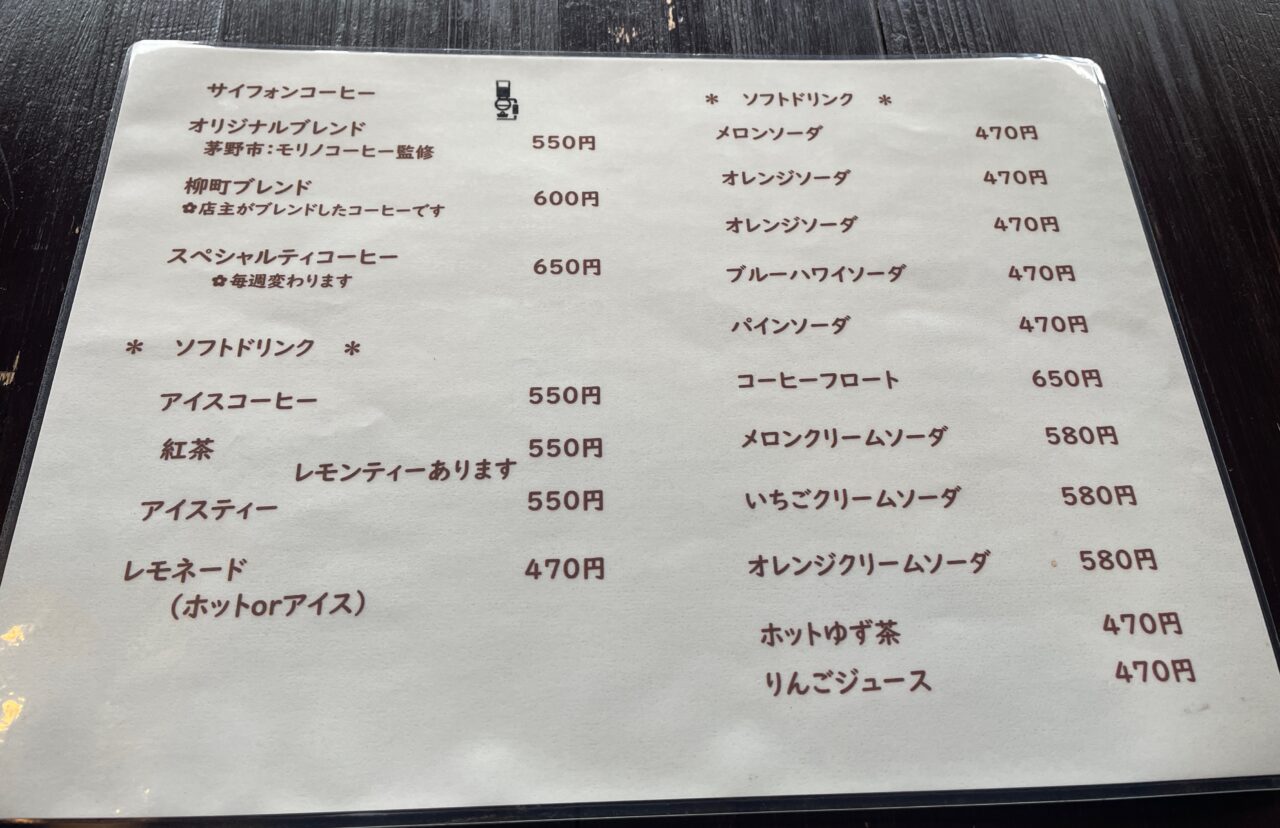 サイフォンコーヒー
オリジナルブレンド 550円
茅野市：モリノコーヒー監修
柳町ブレンド 600円
✿店主がブレンドしたコーヒーです
スペシャルティコーヒー 650円
✿毎週変わります
＊ ソフトドリンク ＊
アイスコーヒー 550円
紅茶 550円
レモンティーあります
アイスティー 550円
レモネード 470円
（ホットorアイス）
＊ ソフトドリンク ＊
メロンソーダ 470円
オレンジソーダ 470円
オレンジソーダ 470円
ブルーハワイソーダ 470円
パインソーダ 470円
コーヒーフロート 650円
メロンクリームソーダ 580円
いちごクリームソーダ 580円
オレンジクリームソーダ 580円
ホットゆず茶 470円
りんごジュース 470円